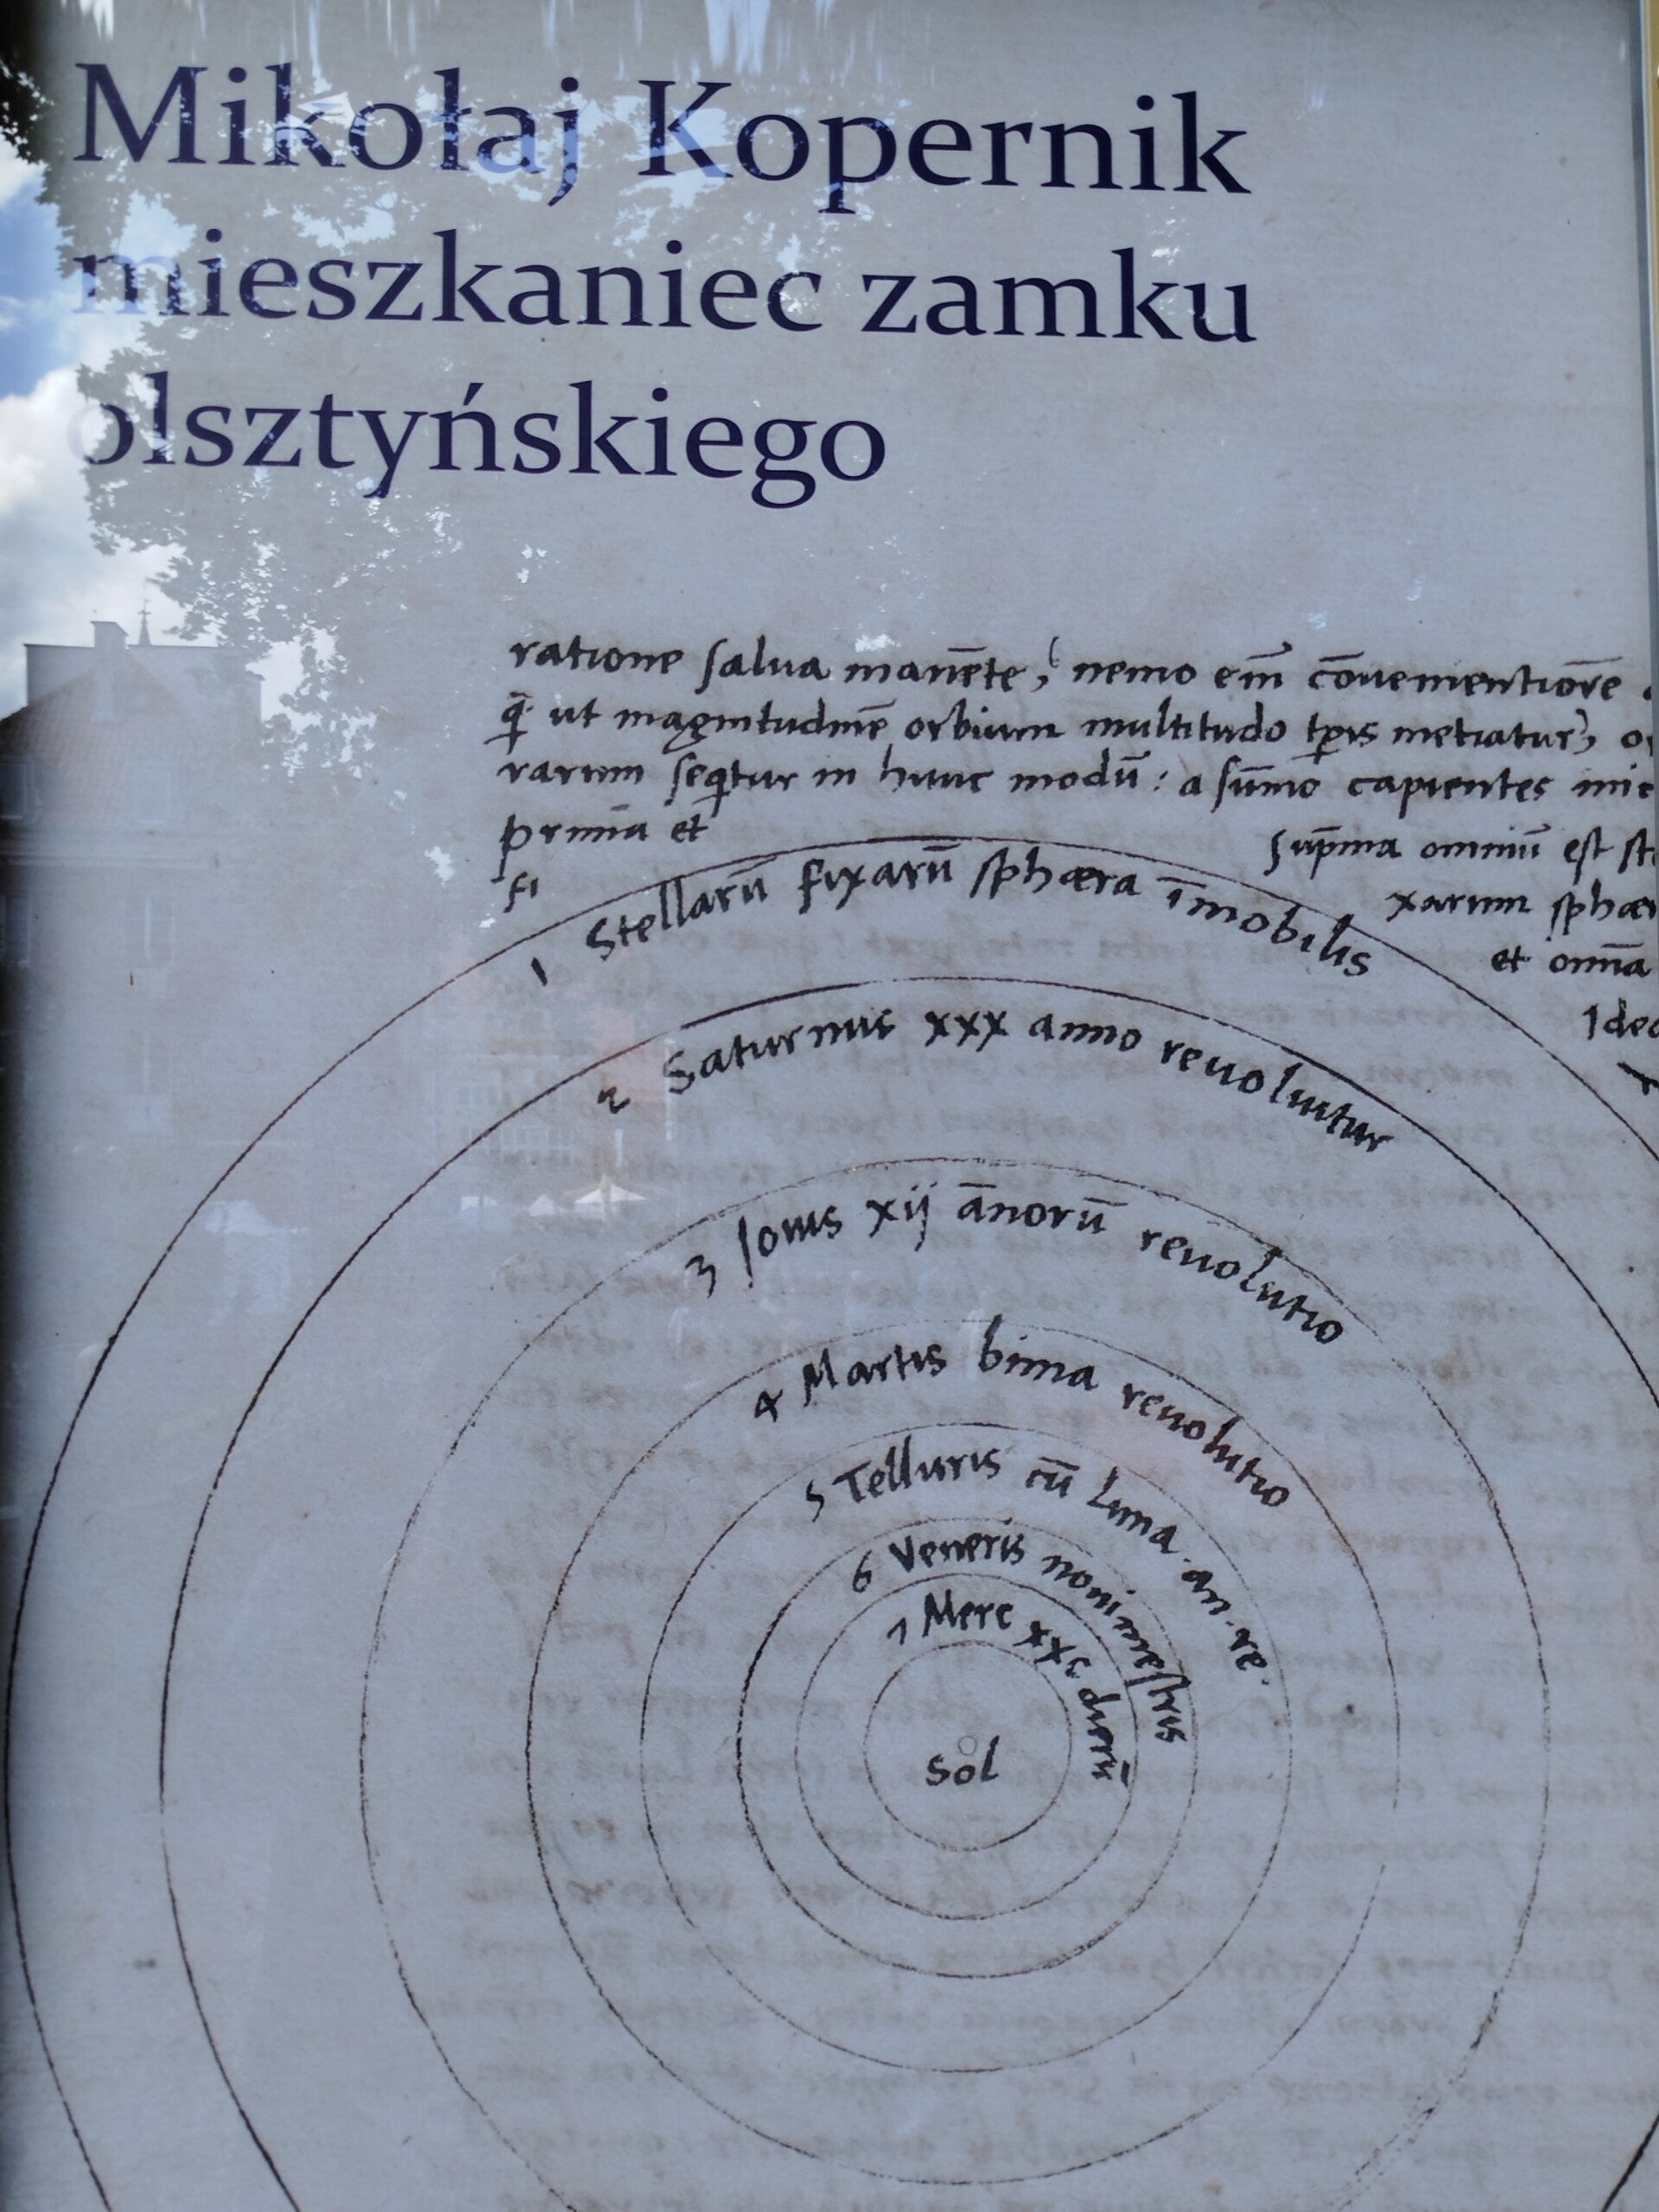 Mikołaj Kopernik
mieszkaniec zamku
olsztyńskiego
ratione salua manēte, nemo em̄ cōuenientiorē
q̄ ut magnitudinē orbium multitudo tp̄is metiatur,
rarum seqtur in hunc modū: a sūmo capientes
prima et
Sup̄ma omniū est
fi
xarum
et omīa
1 Stellarū fixarū sphæra īmobilis
2 Saturnus xxx anno reuoluitur
3 Iouis xij ānorū reuolutio
4 Martis bima reuolutio
5 Telluris cū Luna an. re.
6 Veneris nonimestris
7 Merc xxc dierū
Sol